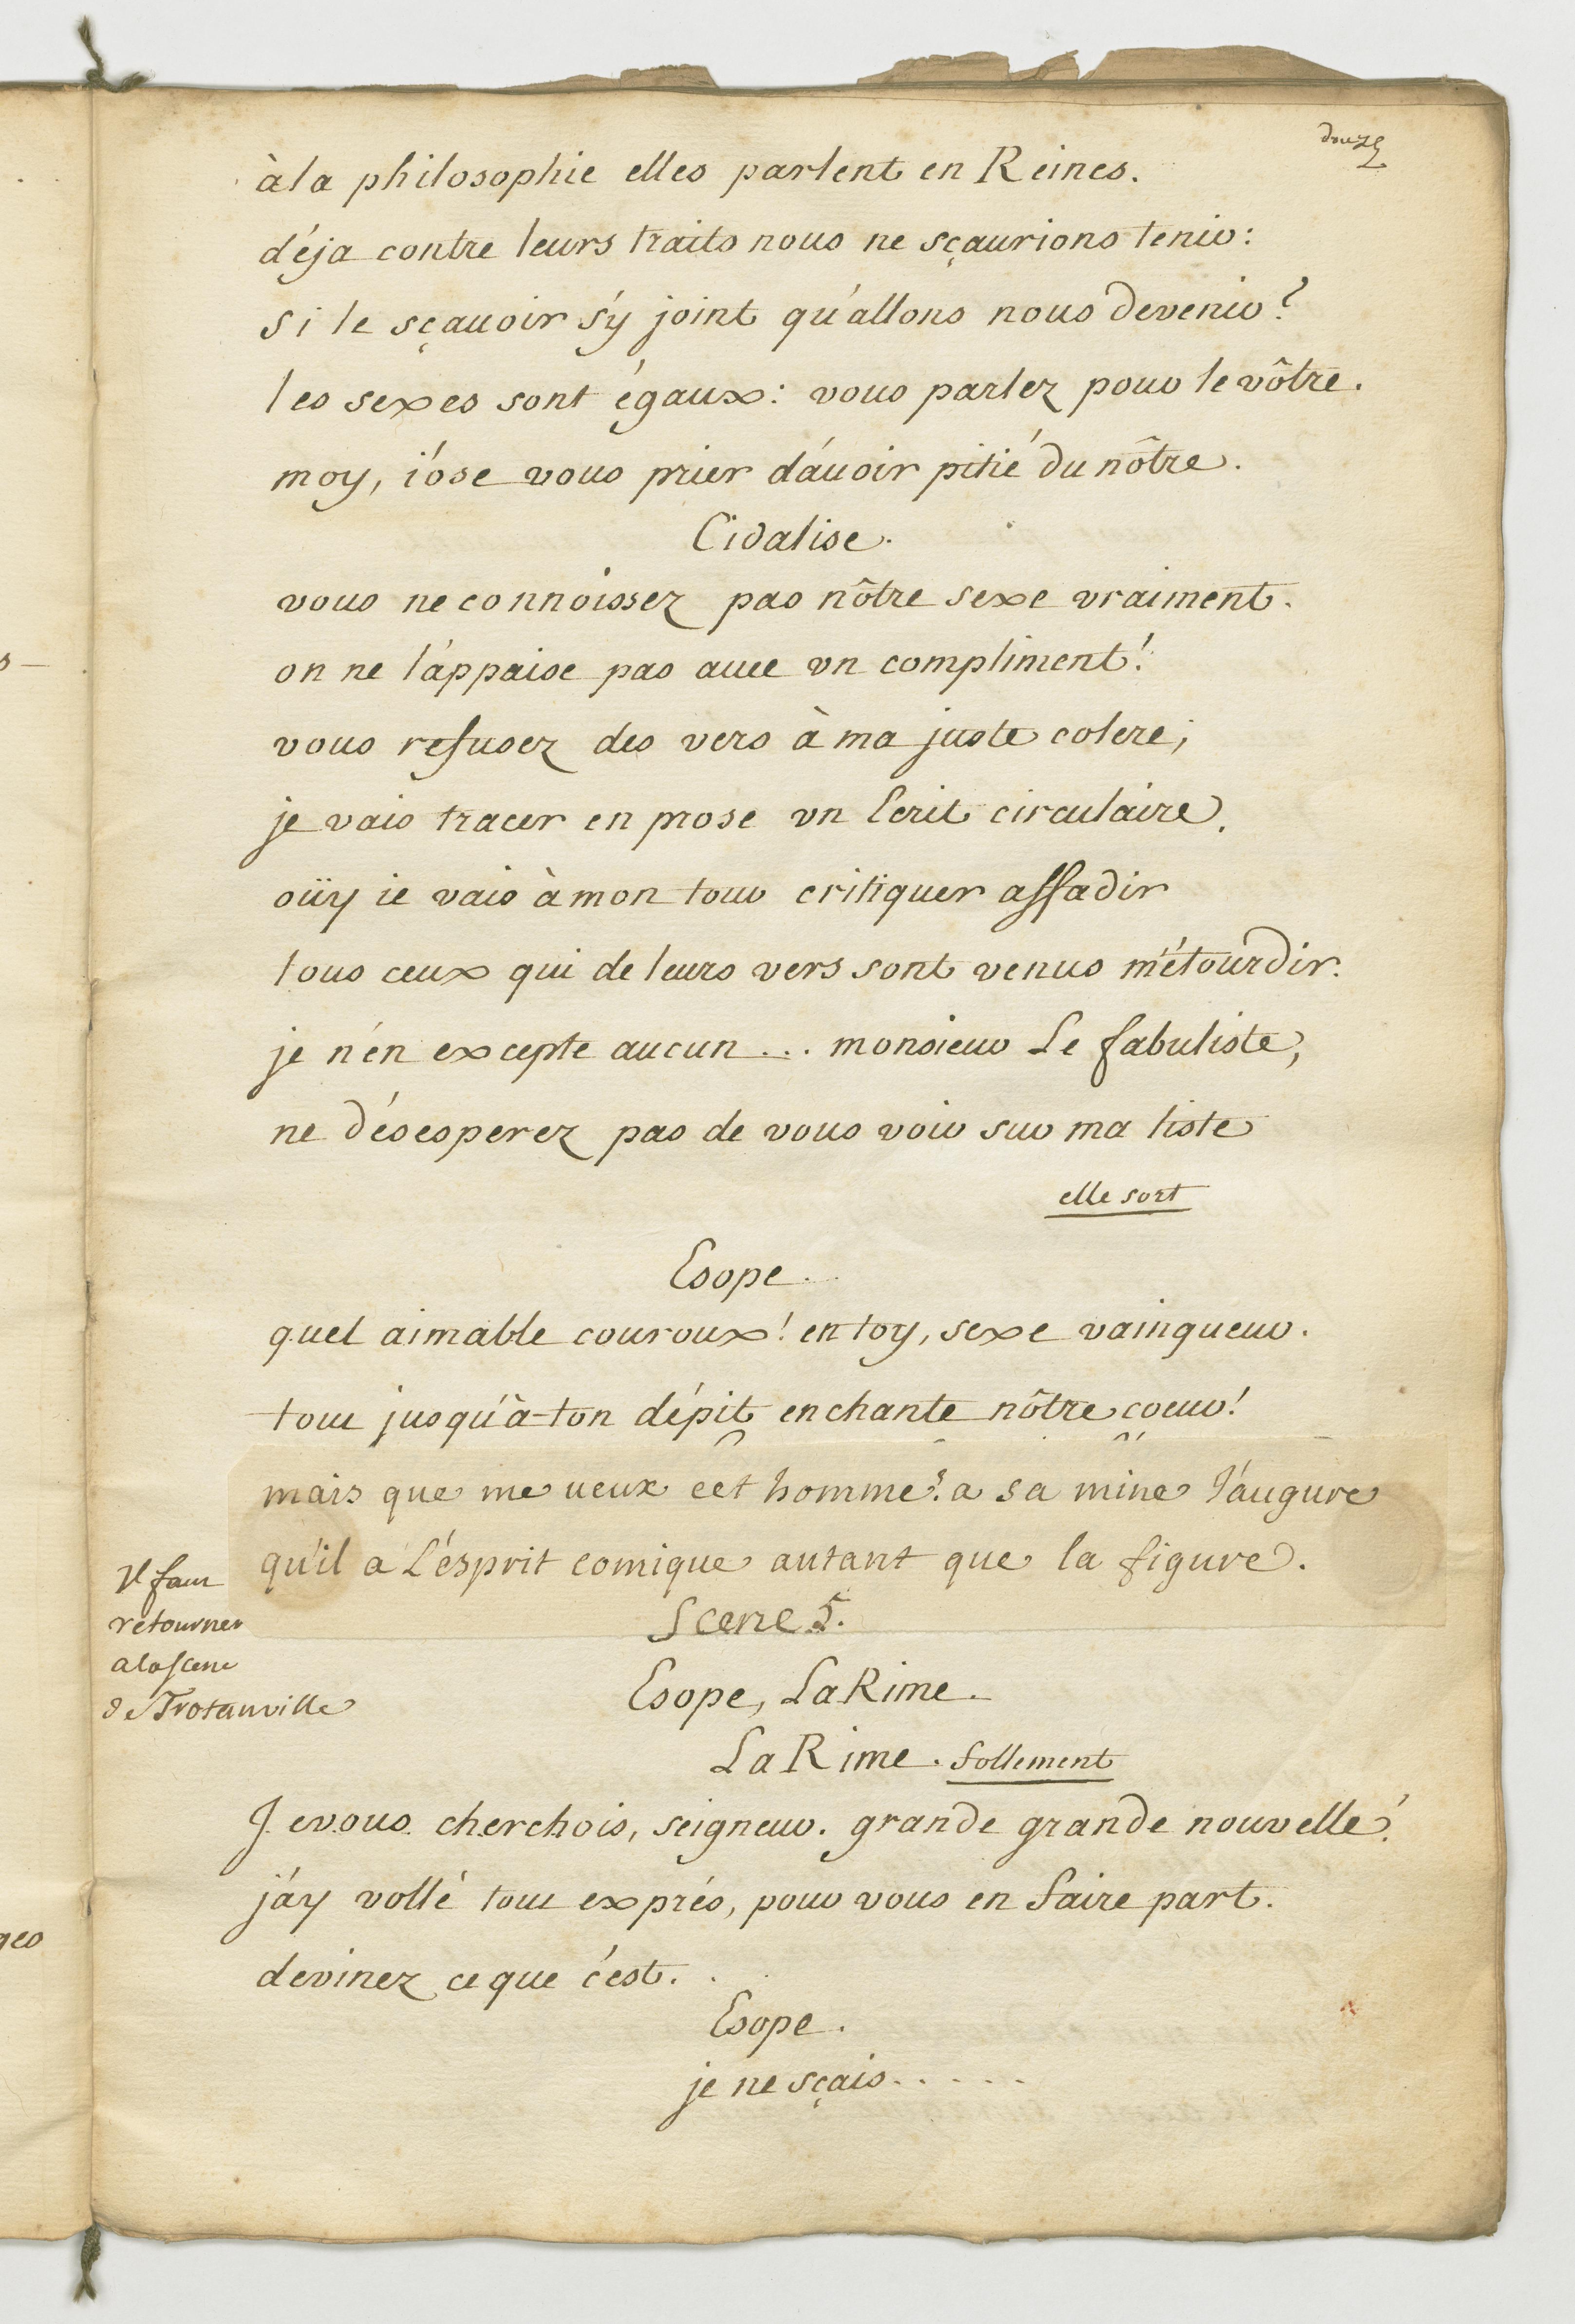 douze
à la philosophie elles parlent en Reines.
déja contre leurs traits nous ne sçaurions tenir:
si le sçauoir s'y joint qu'allons nous devenir?
les sexes sont égaux: vous parlez pour le vôtre.
moy, i'ose vous prier d'auoir pitié du nôtre.
Cidalise.
vous ne connoissez pas nôtre sexe vraiment.
on ne l'appaise pas auec vn compliment!
vous refusez des vers à ma juste colere;
je vais tracer en prose vn Ecrit circulaire.
oüy ie vais à mon tour critiquer affadir
tous ceux qui de leurs vers sont venus m'étourdir.
je n'en excepte aucun... monsieur Le fabuliste,
ne désesperez pas de vous voir sur ma liste
elle sort
Esope.
quel aimable couroux! en toy, sexe vainqueur.
tout jusqu'à ton dépit enchante nôtre coeur!
mais que me ueux cet homme? a sa mine J'augure
qu'il a L'esprit comique autant que la figure.
Il faut
retourner
a la scene
de Trotanville
Scene 5.
Esope, La Rime.
La Rime. follement
Je vous cherchois, seigneur. grande grande nouvelle!
j'ay vollé tout exprés, pour vous en faire part.
devinez ce que c'est. .
Esope.
je ne sçais.....
s –
ges